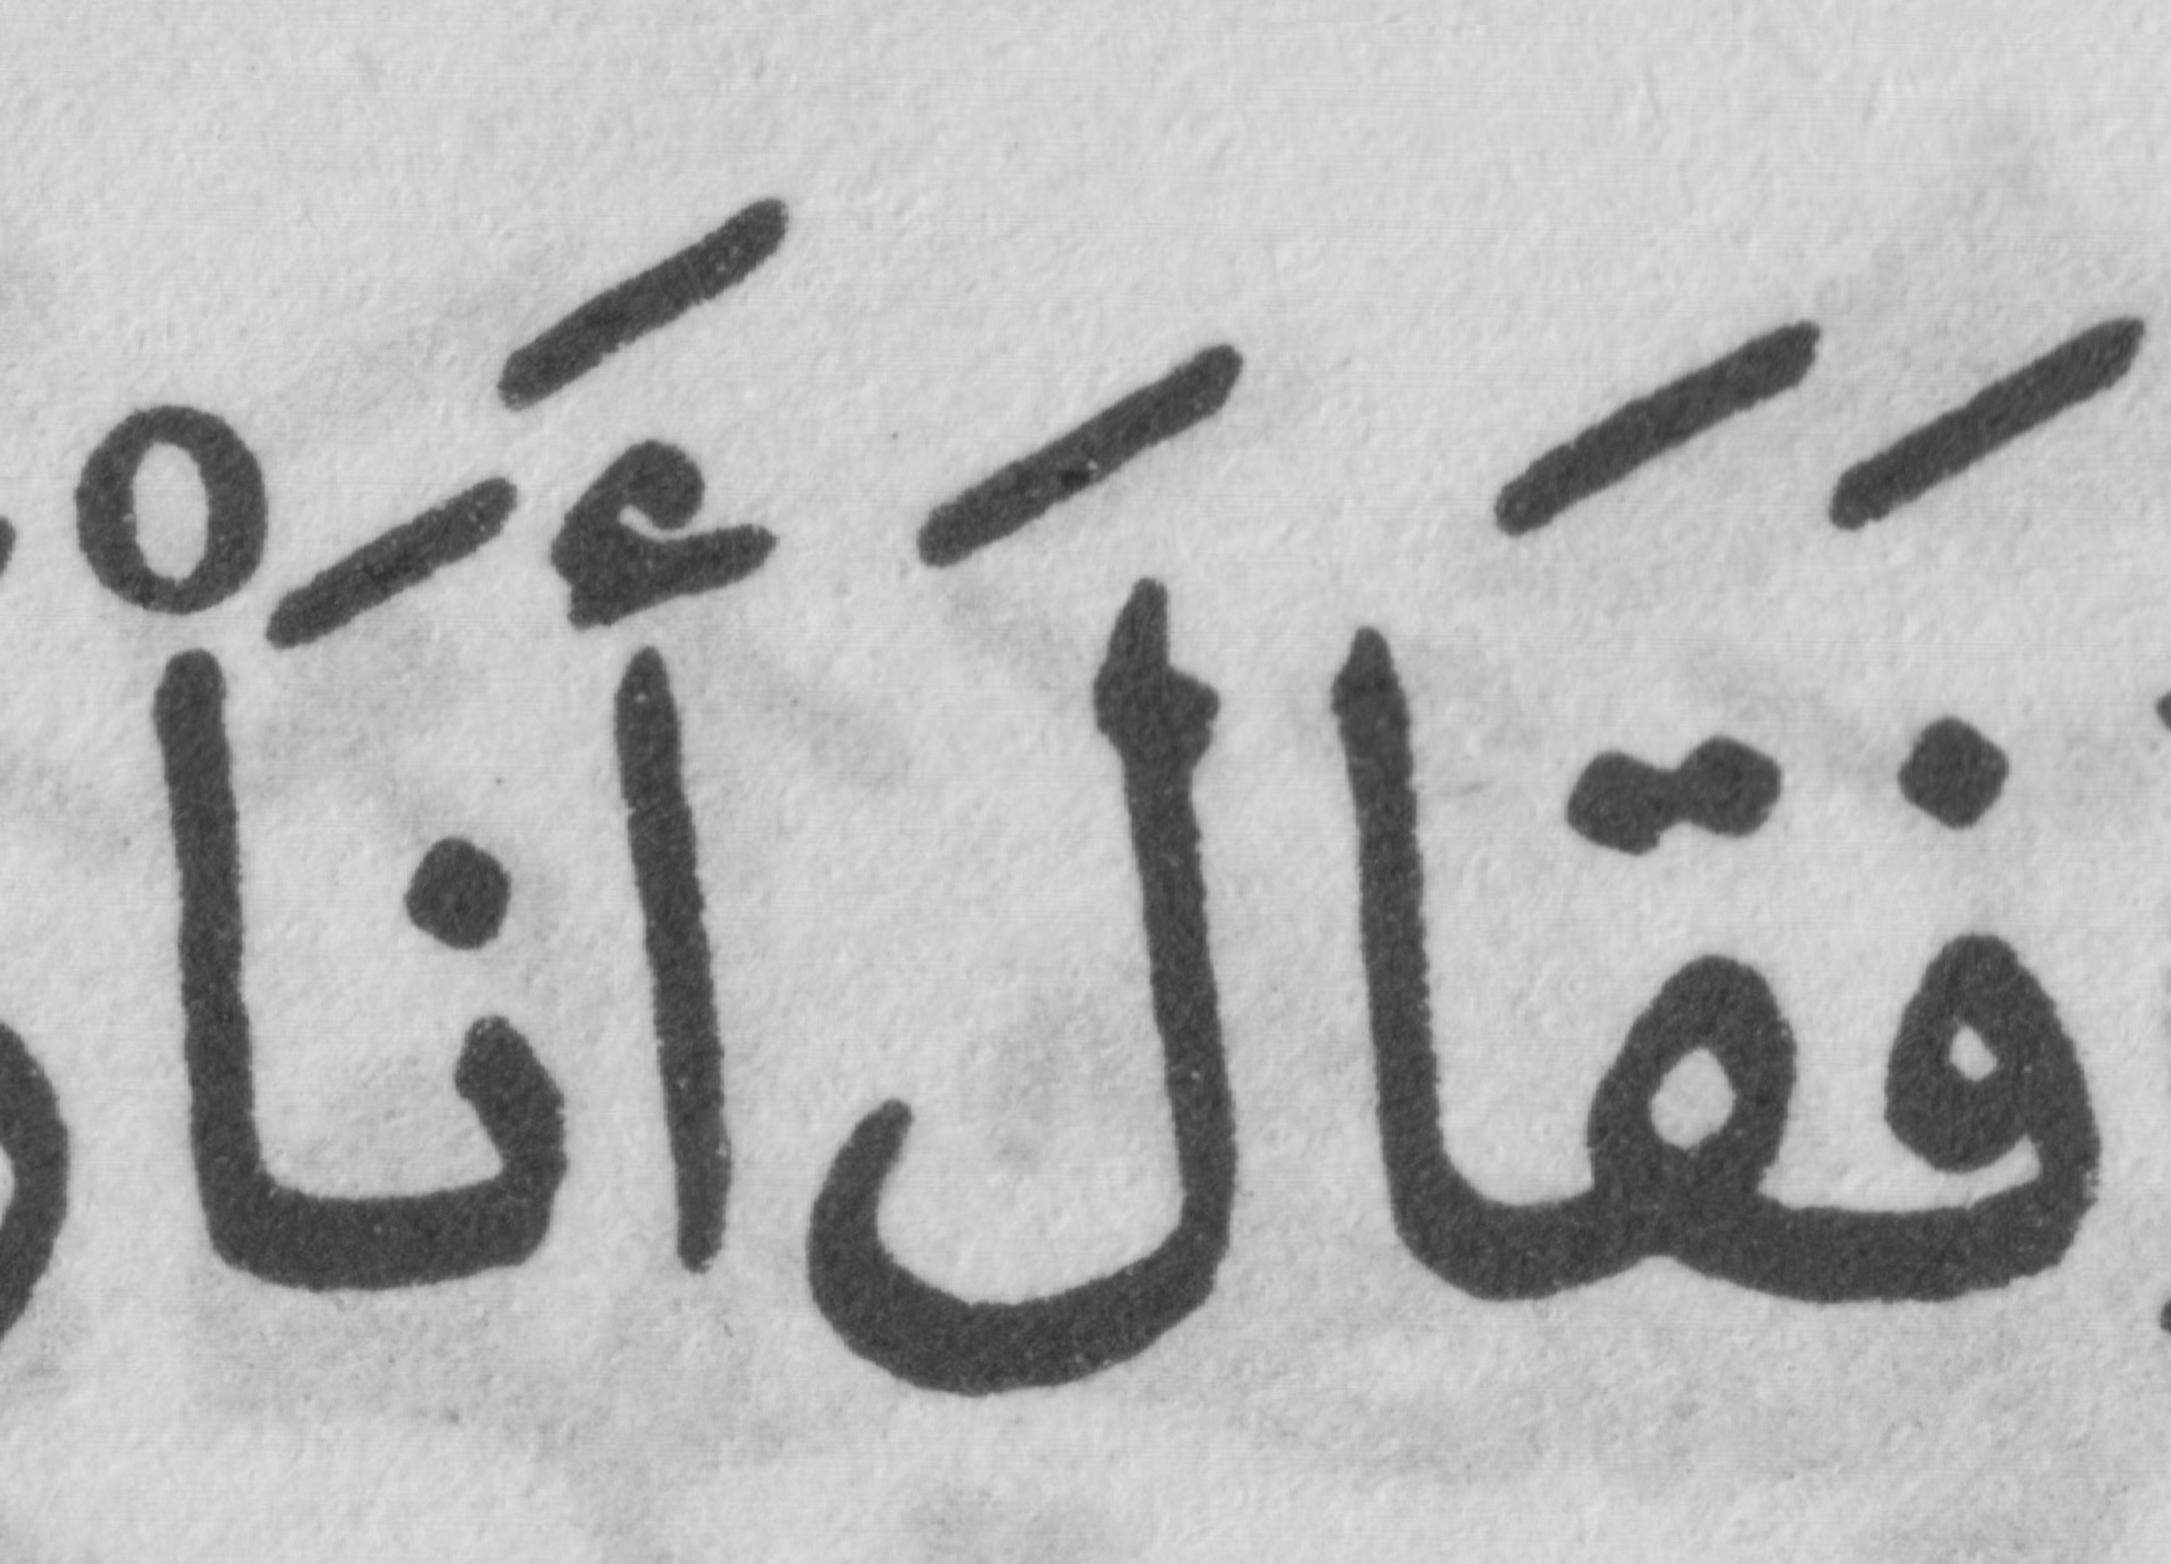 فَقَالَ أَنَا۠